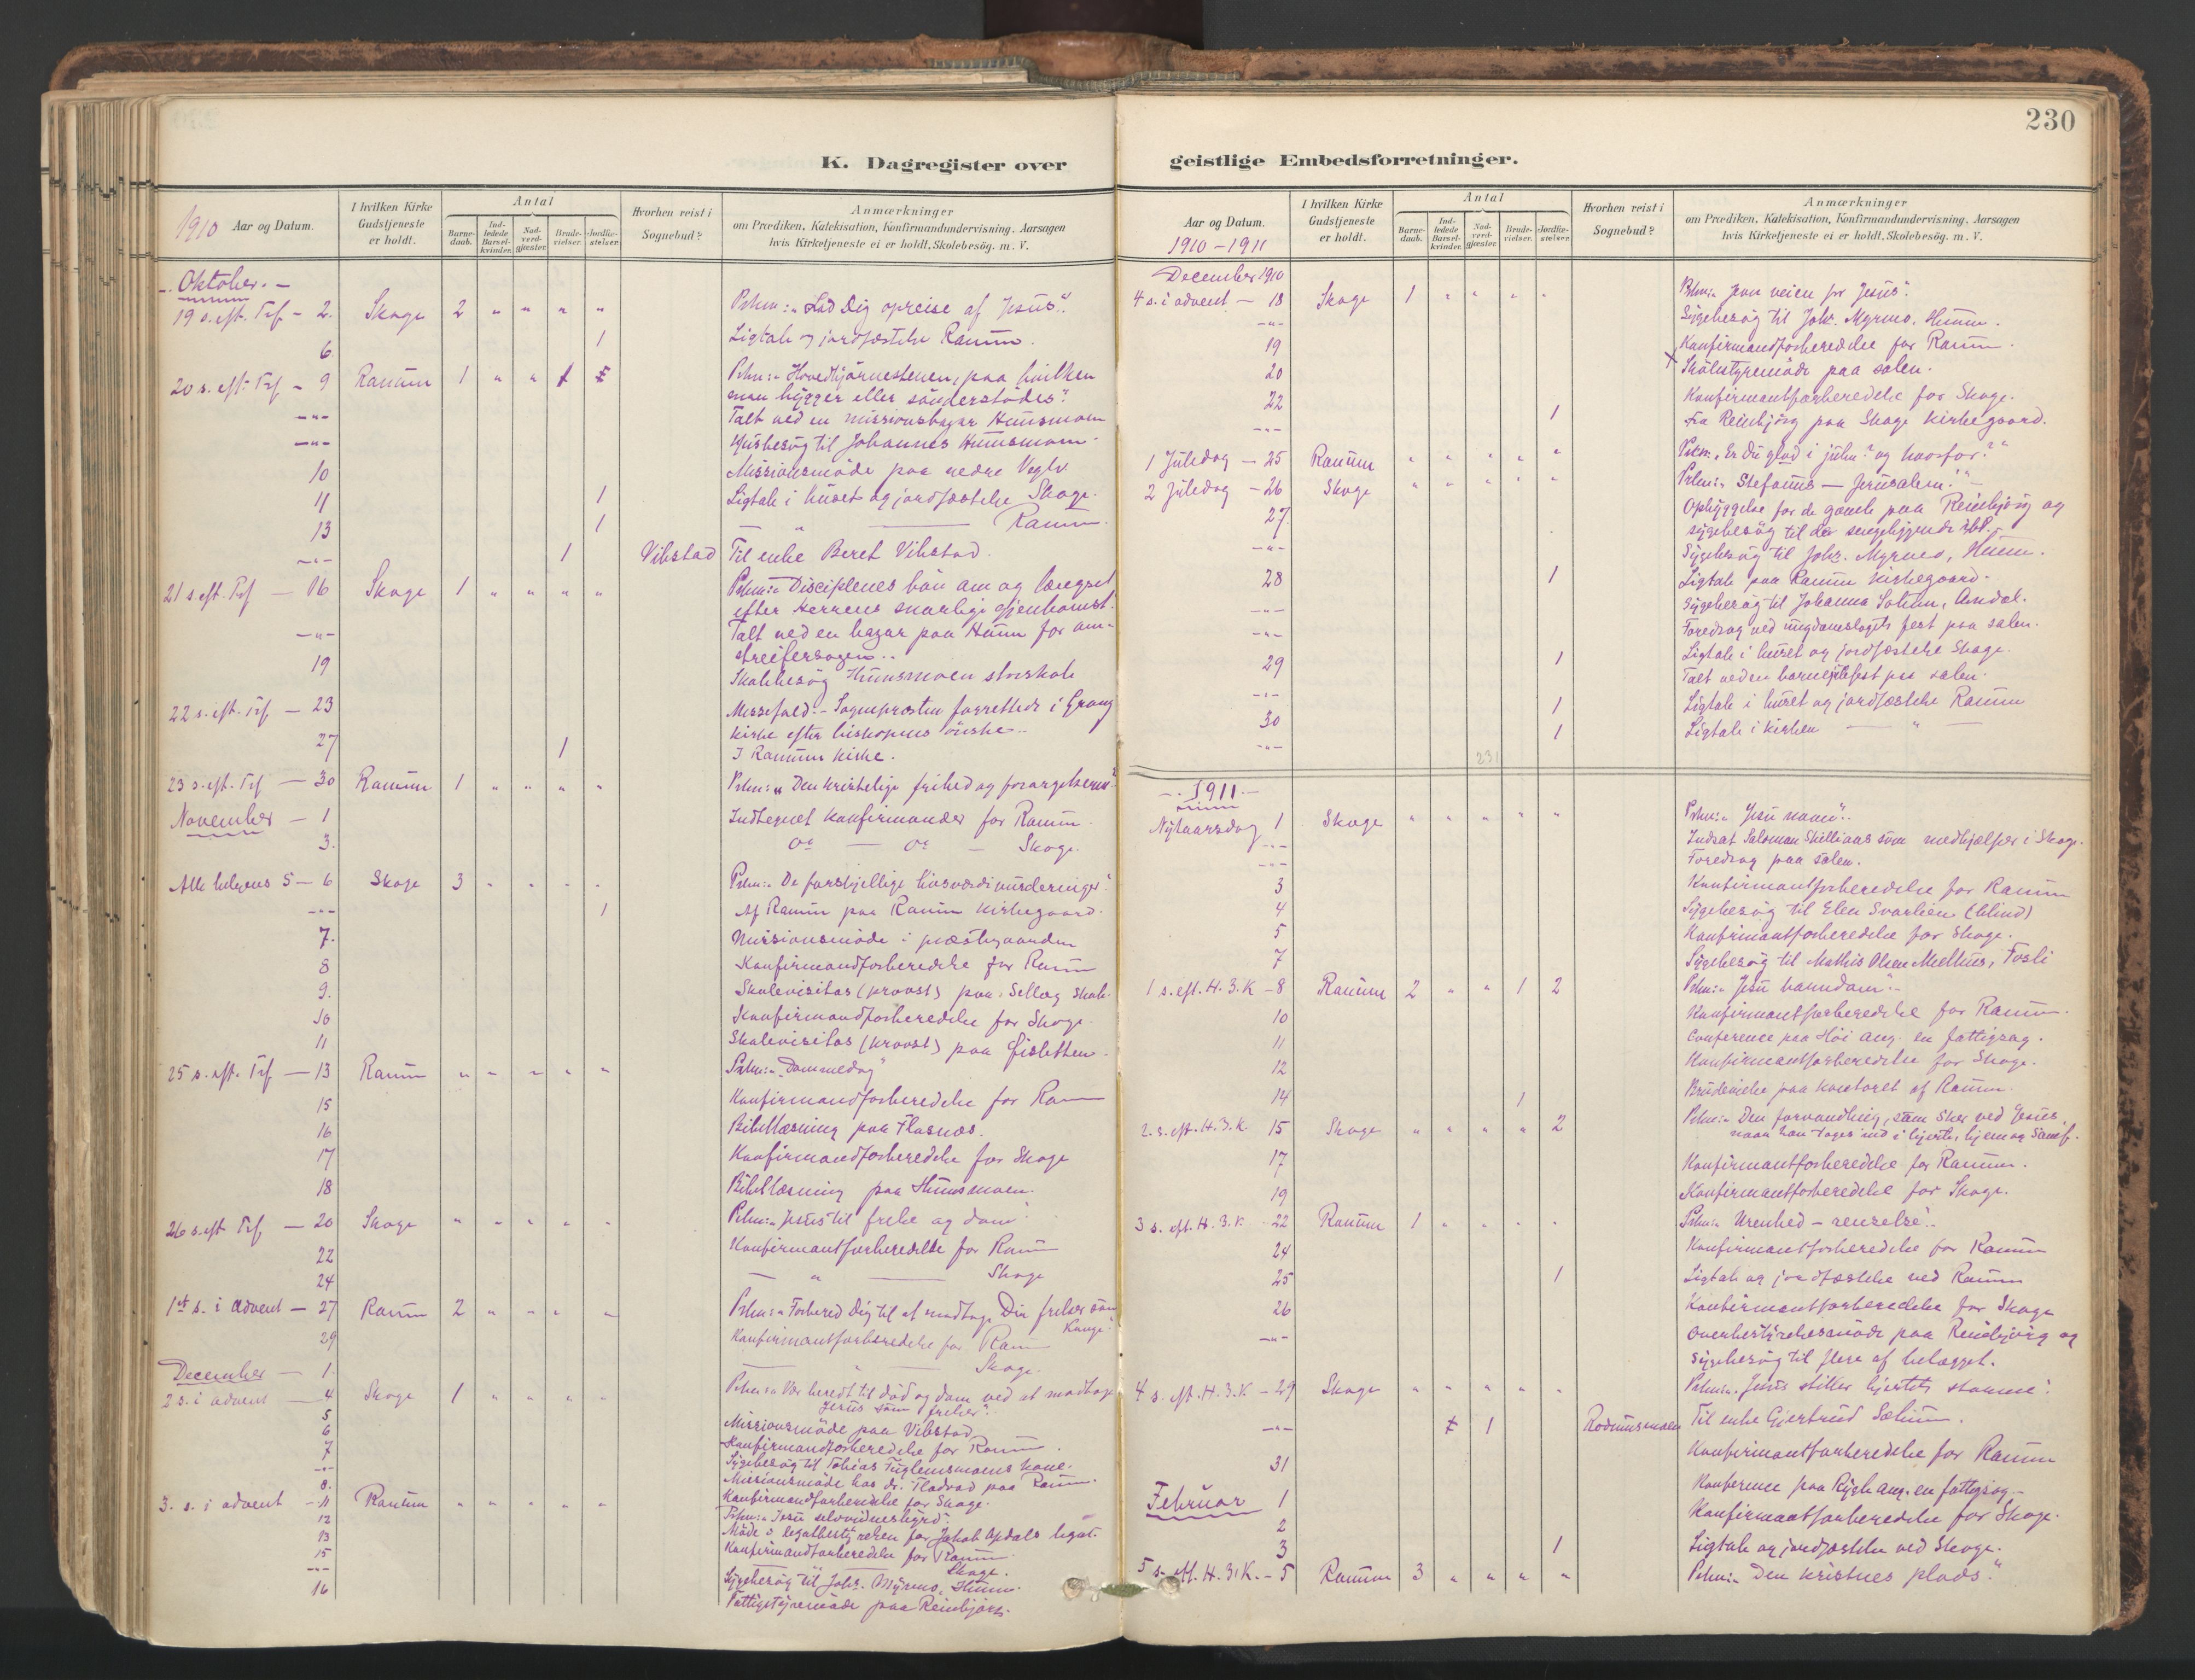 230
K. Dagregister over
geistlige Embedsforretninger.
1910 Aar og Datum.
I hvilken Kirke Gudstjeneste er holdt.
Antal
Barne-daab.
Ind-ledede Barsel-kvinder.
Nad-verd-gjæster.
Brude-vielser.
Jordfæ-stelser.
Hvorhen reist i Sognebud?
Anmærkninger
om Prædiken, Katekisation, Konfirmandundervisning, Aarsagen
hvis Kirketjeneste ei er holdt, Skolebesög. m. V.
Oktober.
19 s. eft. Trf - 2. Skage 2 " " " " Prkn: "Lad Dig opreise af Jesus".
6 1 Ligtale og jordfæstelse Ranum.
20 s. eft. Trf - 9 Ranum 1 " " Prkn: "Hovedhjørnestenen, paa hvilken
man bygger eller sønderstødes".
-"- Talt ved en missionsbazar Hunsmoen
-"- Husbesøg til Johannes Hunsmoen.
10 Missionsmøde paa nedre
11 1 Ligtale i huset og jordfæstelse Skage.
13 1 — " — Ranum.
-"- 1 Vibstad Til enke Beret Vibstad.
21 s. eft. Trf — 16 Skage 1 " " " " Prkn: "Disciplenes bøn om og længsel
efter Herrens snarlige gjenkomst".
-"- Talt ved en bazar paa Hunn for om-
streifersagen.
19 Skolebesøg Hunsmoen storskole
22 s. eft. Trf — 23 Messefald. - Sognepresten forrettede i Grong
kirke efter biskopens ønske.
27 1 I Ranum kirke.
23 s. eft. Trf — 30 Ranum 1 " " " " Prkn: "Den kristelige frihed og forargelserne"
November — 1 Indtegnet konfirmander for Ranum.
3. do — do — Skage.
Alle helgens S — 6 Skage 3 " " " " Prkn: "De forskjellige livsværdivurderinger".
-"- 1 Af Ranum paa Ranum kirkegaard.
7. Missionsmøde i prestegaarden
8 Konfirmandforberedelse for Ranum
9. Skolevisitas (provst) paa Sellæg skole.
10 Konfirmandforberedelse for Skage.
11 Skolevisitas (provst) paa
25 s. eft. Trf — 13 Ranum " " " " " Prkn: "Dommedag"
15 Konfirmandforberedelse for Ranum
16 Bibellæsning paa Flasnæs.
17 Konfirmandforberedelse for Skage
18 Bibellæsning paa Hunsmoen.
26 s. eft Trf — 20 Skage " " " " " Prkn: "Jesus til frelse og dom".
22 Konfirmantforberedelse for Ranum
24 — " — Skage
1st s. i advent — 27 Ranum 2 " " " " Prkn: "Forbered Dig til at modtage Din frelser som
Konge".
29 Konfirmantforberedelse for Ranum
December — 1. — " — Skage.
2 s. i advent — 4 Skage 1 " " " " Prkn: "Vær beredt til død og dom ved at modtage
Jesus som frelser".
5 Missionsmøde paa Vibstad
6 Konfirmandforberedelse for Ranum.
7 Sygebesøg til Tobias Fuglemsmoens kone.
-"- Missionsmøde hos dr. Fladvad paa Ranum.
8. Konfirmandforberedelse for Skage.
3. s. i advent — 11 Ranum " " " " " Prkn: "Jesu selvvidnesbyrd".
12 Møde i legatbestyrelsen for Jakob Opdals legat.
13 Konfirmandforberedelse for Ranum
15 — " — Skage.
-"- Sygebesøg til Johs. Myrmo, Hunn.
16 Fattigstyremøde paa Reinbjørg.
Aar og Datum.
1910-1911
I hvilken Kirke Gudstjeneste er holdt.
Antal
Barne-daab.
Ind-ledede Barsel-kvinder.
Nad-verd-gjæster.
Brude-vielser.
Jordfæ-stelser.
Hvorhen reist i Sognebud?
Anmærkninger
om Prædiken, Katekisation, Konfirmandundervisning, Aarsagen
hvis Kirketjeneste ei er holdt, Skolebesög. m. V.
December 1910
4 s. i advent — 18 Skage 1 " " " " Prkn: "Jevn veien for Jesus".
-"- Sygebesøg til Johs. Myrmo, Hunn.
19 Konfirmandforberedelse for Ranum.
20 X Skolestyremøde paa salen.
22 Konfirmantforberedelse for Skage.
-"- 1 Fra Reinbjørg paa Skage kirkegaard.
1 Juledag — 25 Ranum " " " " " Prkn: "Er du glad i julen? og hvorfor?"
2 Juledag — 26 Skage " " " " " Prkn: "Stefanus — Jerusalem".
27 Opbyggelse for de gamle paa Reinbjørg og
sygebesøg til der sengeliggende
-"- Sygebesøg til Johs. Myrmo, Hunn.
28 1 Ligtale paa Ranum kirkegaard.
-"- Sygebesøg til Johanna
-"- Foredrag ved ungdomslagets fest paa salen.
29 1 Ligtale i huset og jordfæstelse Skage.
-"- Talt ved en barnejulefest paa salen.
30 1 Ligtale i huset og jordfæstelse Ranum
-"- 1 Ligtale i kirken — " —
231
1911.
Nytaarsdag 1 Skage " " " " " Prkn: "Jesu navn".
-"- Indsat Salomon Skilliaas som medhjælper i Skage.
-"- Foredrag paa salen.
3 Konfirmantforberedelse for Ranum
4 Sygebesøg til Elen Svarlien (blind)
5 Konfirmantforberedelse for Skage.
7 Sygebesøg til Mathis Olsen Melhus, Fosli
1 s. eft. H. 3. K — 8 Ranum 2 " " 1 2 Prkn: "Jesu barndom".
10 Konfirmantforberedelse for Ranum.
11 Conference paa Høi ang. en fattigsag.
12 Konfirmantforberedelse for Skage.
14 1 Brudevielse paa kontoret af Ranum.
2. s. eft. H. 3. K. 15 Skage " " " " 2 Prkn: "Den forvandling, som sker ved Jesus,
naar han tages ind i hjerte, hjem og samf.
17 Konfirmantforberedelse for Ranum.
19 Konfirmantforberedelse for Skage.
3 s. eft. H. 3. K 22 Ranum 1 " " " " Prkn: "Urenhed — renselse".
24 Konfirmantforberedelse for Ranum
25 1 Ligtale og jordfæstelse ved Ranum
26 Konfirmantforberedelse for Skage
-"- Overbestyrelsesmøde paa Reinbjørg og
sygebesøg til flere af belægget.
4 s. eft. H. 3. K — 29 Skage " " " " " Prkn: "Jesus stiller hjertets storme".
-"- 1 Rodumsmoen Til enke Gjertrud Sælium.
31 Konfirmantforberedelse for Ranum
Februar 1 Konference paa Rygh ang. en fattigsag.
2 Konfirmantforberedelse for Skage.
3 1 Ligtale og jordfæstelse ved Skage.
5 s. eft. H. 3. K. — 5 Ranum 3 " " " " Prkn: "Den kristnes plads".